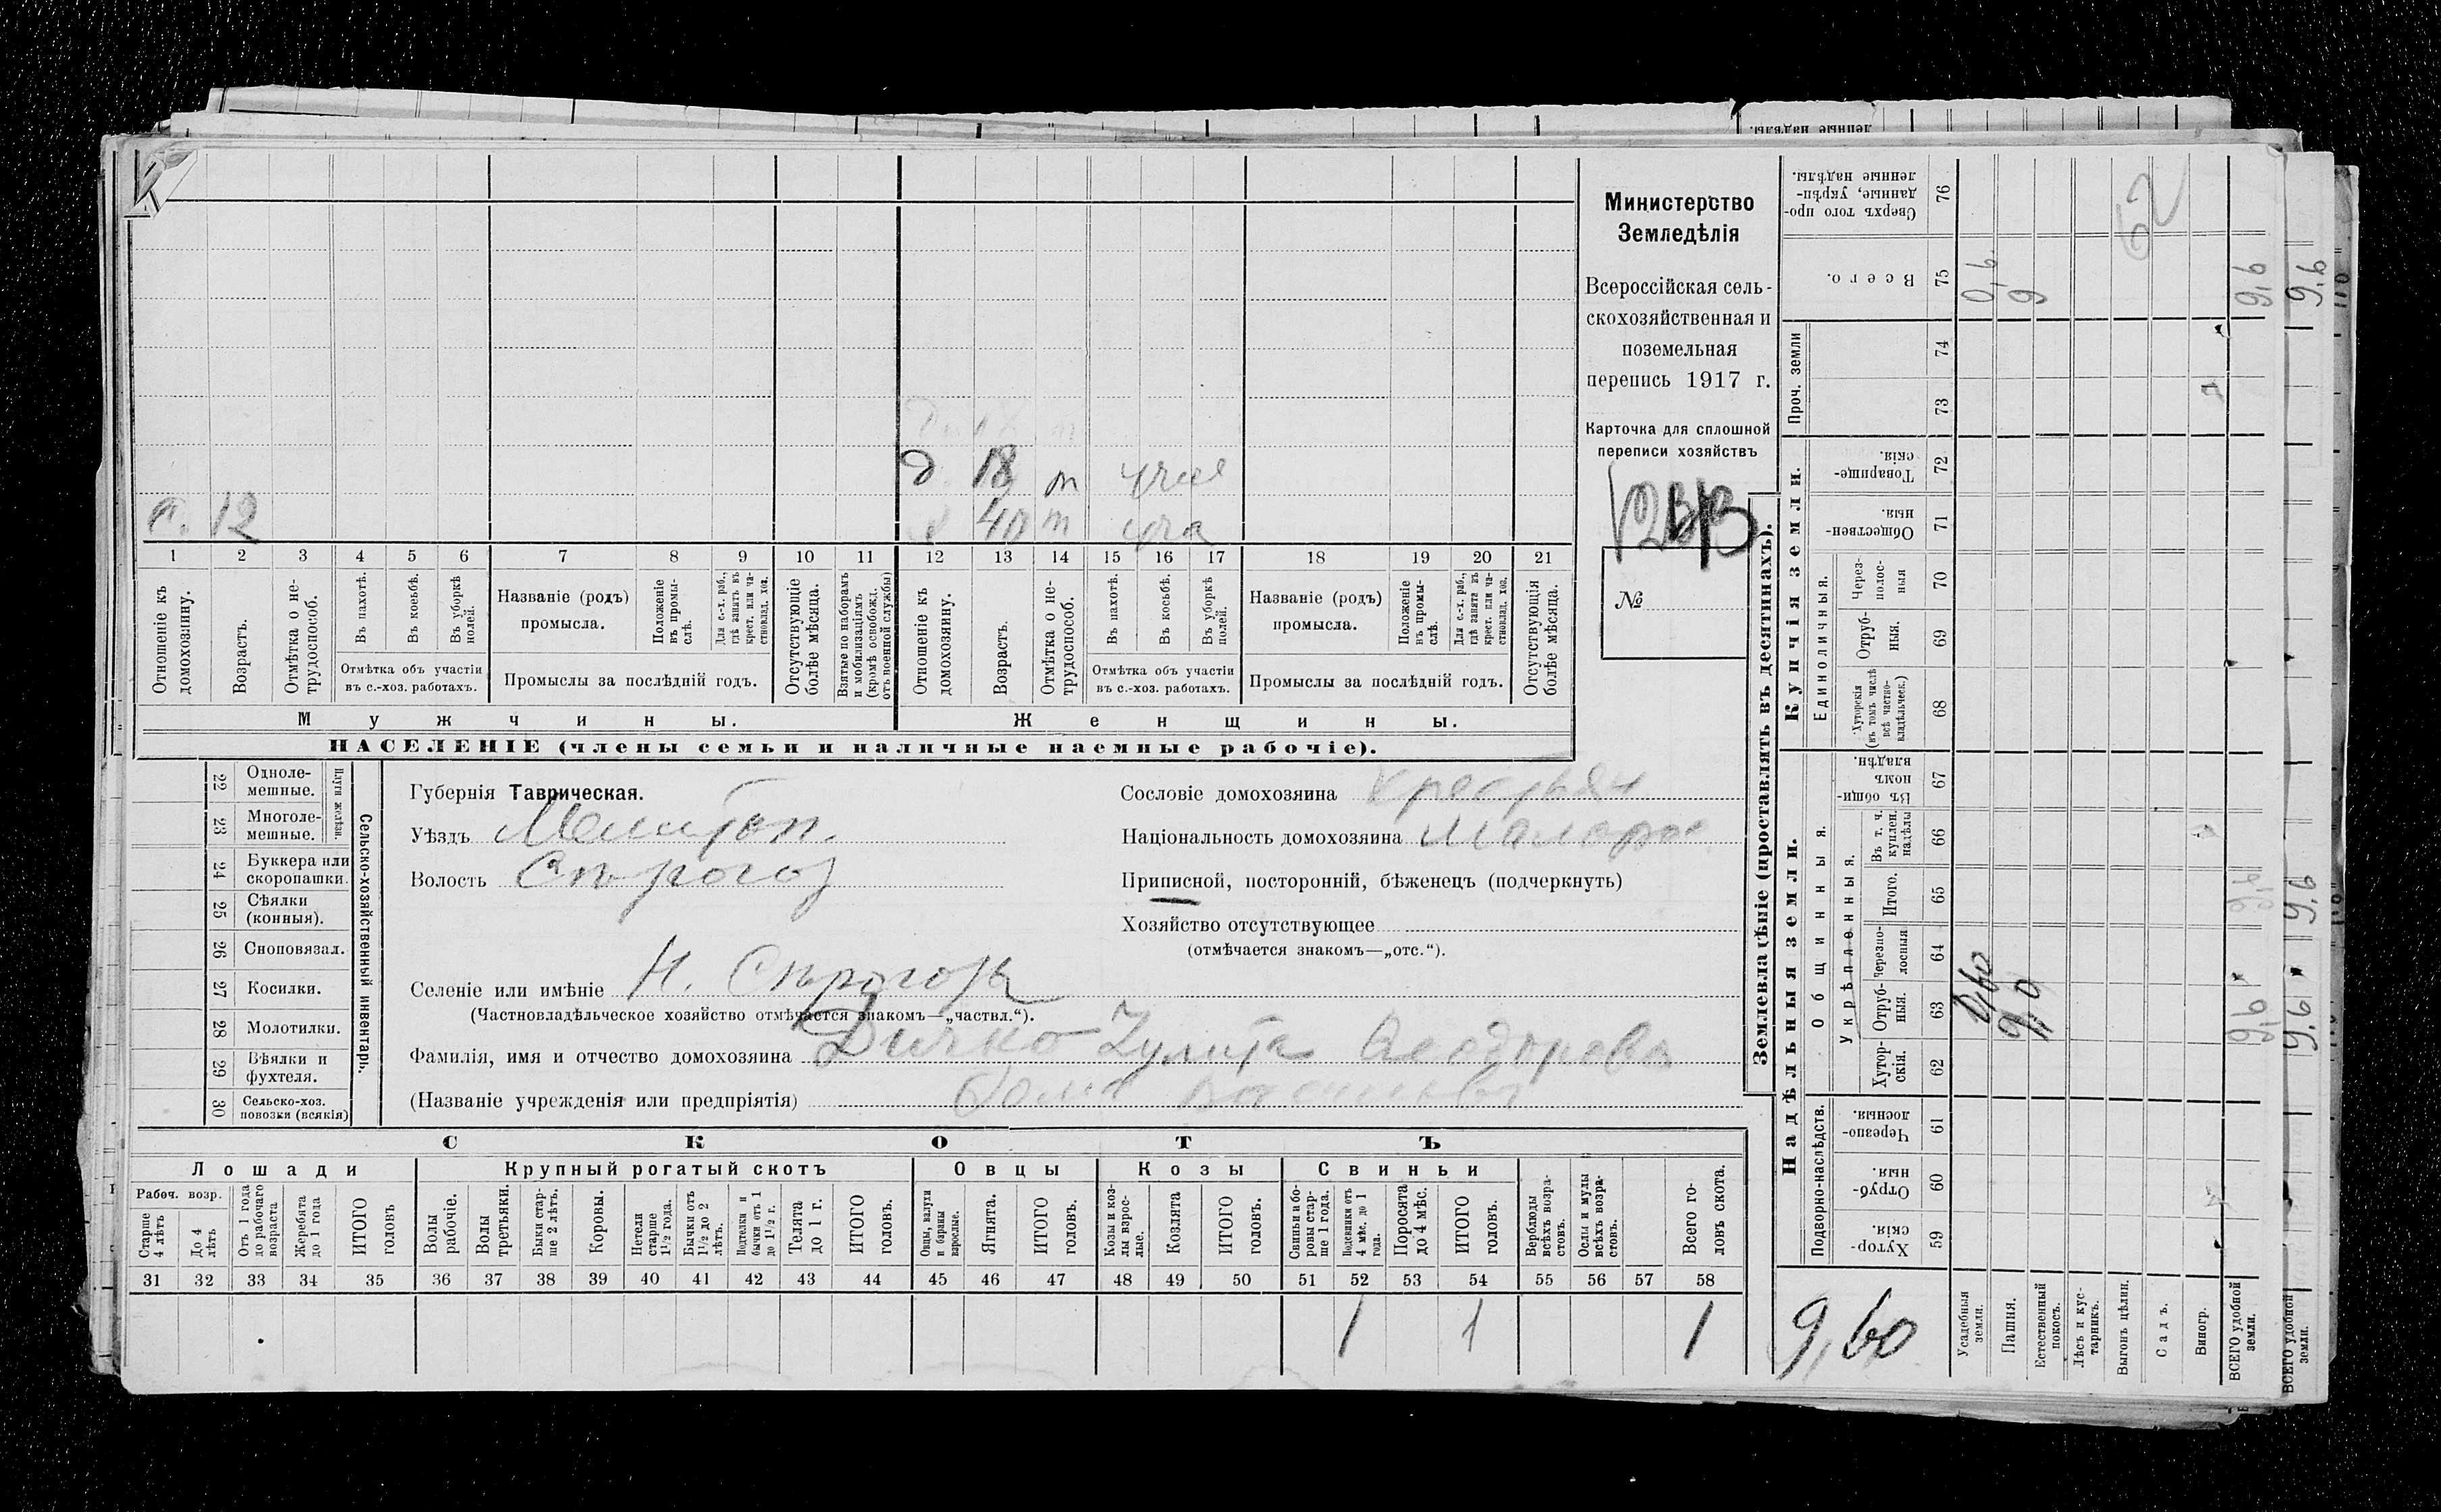 ленные надѣлы.
Министерство
Земледѣлія
Всероссійская сель-
скохозяйственная и
поземельная
перепись 1917 г.
Карточка для сплошной
переписи хозяйствъ
№
д 18 т
с. 12
40 т
1 2 3 4 5 6 7 8 9 10 11 12 13 14 15 16 17 18 19 20 21
Отношеніе къ домохозяину.
Возрастъ.
Отмѣтка о не-трудоспособ.
Въ пахотѣ.
Въ косьбѣ.
Въ уборкѣ полей.
Отмѣтка объ участіи
въ с.-хоз. работахъ.
Названіе (родъ)
промысла.
Положеніе въ промы-слѣ.
Для с.-х. раб., гдѣ занятъ въ крест. или ча-стновлад. хоз.
Промыслы за послѣдній годъ.
Отсутствующіе болѣе мѣсяца.
Взятые по наборамъ и мобилизаціямъ (кромѣ освобожд. отъ военной службы)
Отношеніе къ домохозяину.
Возрастъ.
Отмѣтка о не-трудоспособ.
Въ пахотѣ.
Въ косьбѣ.
Въ уборкѣ полей.
Отмѣтка объ участіи
въ с.-хоз. работахъ.
Названіе (родъ)
промысла.
Положеніе въ промы-слѣ.
Для с.-х. раб., гдѣ занята въ крест. или ча-стновлад. хоз.
Промыслы за послѣдній годъ.
Отсутствующія болѣе мѣсяца.
Мужчины.
Женщины.
НАСЕЛЕНІЕ (члены семьи и наличные наемные рабочіе).
22 Одноле-мешные.
23 Многоле-мешные.
Плуги желѣзн.
24 Буккера или скоропашки.
25 Сѣялки (конныя).
26 Сноповязал.
27 Косилки.
28 Молотилки.
29 Вѣялки и фухтеля.
30 Сельско-хоз. повозки (всякія)
Сельско-хозяйственный инвентарь.
Губернія Таврическая.
Уѣздъ Мелитоп.
Волость Сѣрогоз
Селеніе или имѣніе Н. Сѣрогозы
(Частновладѣльческое хозяйство отмѣчается знакомъ—„частвл.“).
Фамилія, имя и отчество домохозяина
(Названіе учрежденія или предпріятія)
Сословіе домохозяина крестьян
Національность домохозяина малорос
Приписной, посторонній, бѣженецъ (подчеркнуть)
Хозяйство отсутствующее
(отмѣчается знакомъ—„отс.“).
СКОТЪ
Лошади
Крупный рогатый скотъ
Овцы
Козы
Свиньи
Рабоч. возр.
Старше 4 лѣтъ
До 4 лѣтъ
Отъ 1 года до рабочаго возраста
Жеребята до 1 года
ИТОГО головъ
Волы рабочіе.
Волы третьяки.
Быки стар-ше 2 лѣтъ.
Коровы.
Нетели старше 1½ года.
Бычки отъ 1½ до 2 лѣтъ.
Подтелки и бычки отъ 1 до 1½ г.
Телята до 1 г.
ИТОГО головъ.
Овцы, валухи и бараны взрослые.
Ягнята.
ИТОГО головъ.
Козы и коз-лы взрос-лые.
Козлята
ИТОГО головъ.
Свиньи и бо-ровы стар-ше 1 года.
Подсвинки отъ 4 мѣс. до 1 года.
Поросята до 4 мѣс.
ИТОГО головъ.
Верблюды всѣхъ возра-стовъ.
Ослы и мулы всѣхъ возра-стовъ.
Всего го-ловъ скота.
31 32 33 34 35 36 37 38 39 40 41 42 43 44 45 46 47 48 49 50 51 52 53 54 55 56 57 58
1 1 1
Землевладѣніе (проставлять въ десятинахъ).
Надѣльныя земли.
Купчія земли.
Проч. земли
Подворно-наслѣдств.
Общинныя.
Укрѣпленныя.
Единоличныя.
Хутор-скія. 59
Отруб-ныя. 60
Черезпо-лосныя. 61
Хутор-скія. 62
Отруб-ныя. 63
Черезпо-лосныя 64
Итого. 65
Въ т. ч. куплен. надѣлы 66
Въ общин-номъ владѣн. 67
Хуторскія (въ томъ числѣ всѣ частно-владѣльческ.) 68
Отруб-ныя. 69
Через-полос-ныя 70
Обществен-ныя. 71
Товарище-скія. 72
73
74
Всего. 75
Сверхъ того про-данные, укрѣп-ленные надѣлы. 76
9,60
Усадебныя земли. 0,60 0,6
Пашня. 9,0 9
Естественный покосъ.
Лѣсъ и кус-тарникъ.
Выгонъ цѣлин.
Садъ.
Виногр.
ВСЕГО удобной земли. 9,6 9,6 9,6
ВСЕГО удобной земли. 9.6 9.6 9.6
62